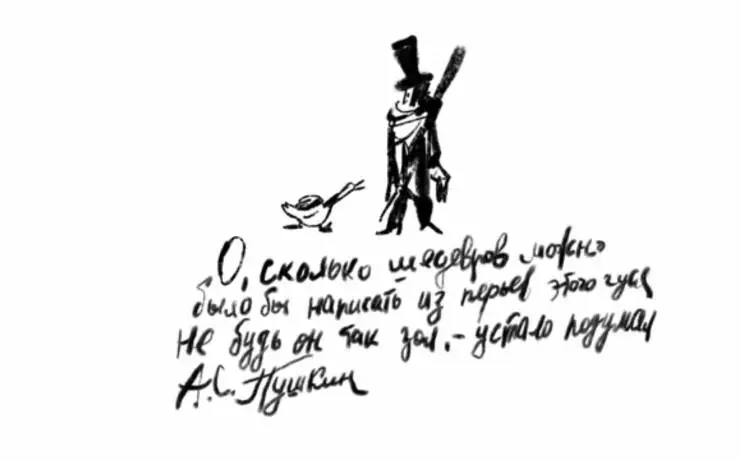 „О, сколько шедевров можно
было бы написать из перьев этого гуся,
не будь он так зол, - устало подумал
А.С. Пушкин